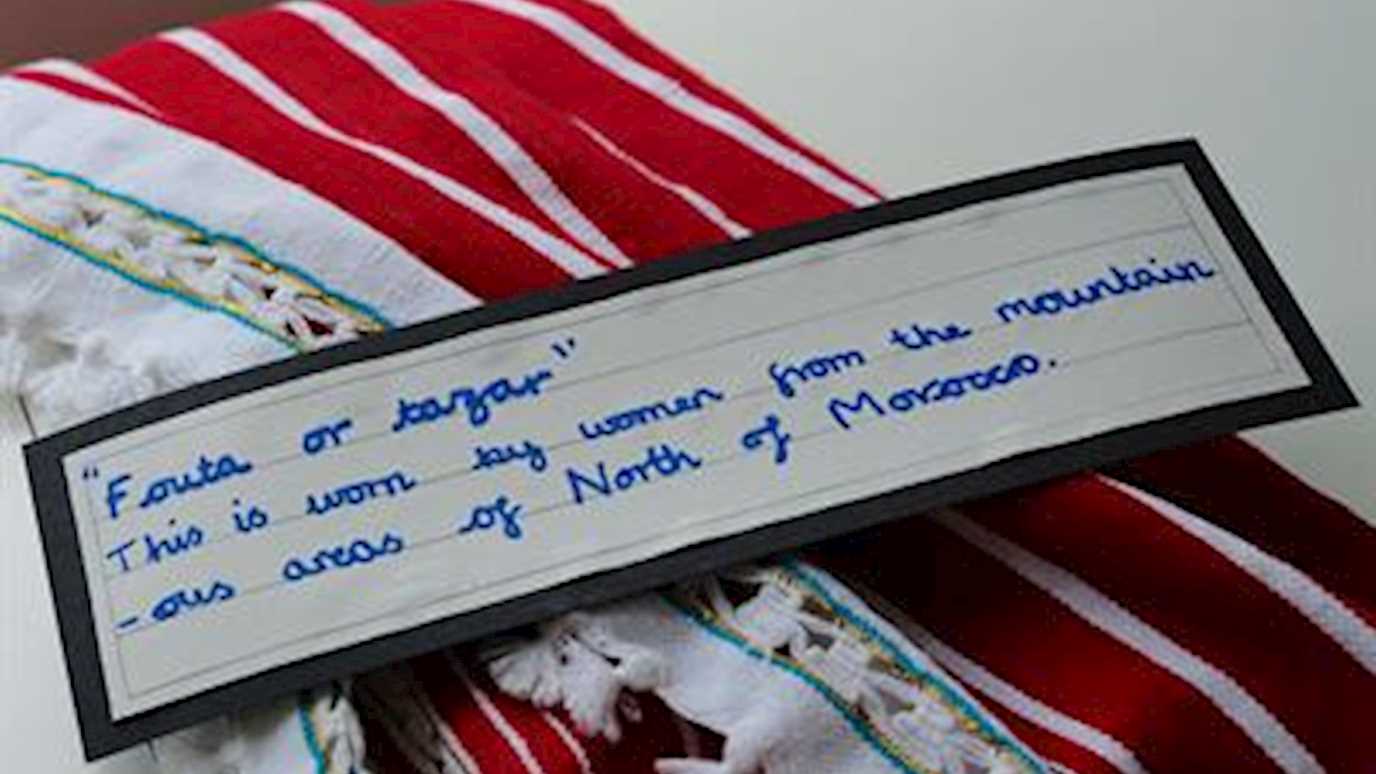 "Fouta or tazar"
This is worn by women from the mountain
-ous areas of North of Morocco.